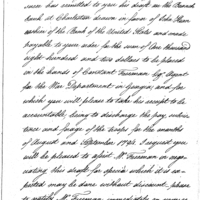 has remitted to you his draft on the Branch
Bank at Charleston drawn in favor of
cashier of the Bank of the United States and made
payable to your order for the sum of One thousand
eight hundred and two dollars to be placed
in the hands of Constant Freeman Esqr. Agent
for the War Department in Georgia; and for
which you will please to take his receipt to be
accountable; being to discharge the pay, subsis-
tence and forage of the troops for the months
of August and September 1794. I request you
will be pleased to assist Mr. Freeman in nego-
ciating this draft for specie which it is ex-
pected may be done without discount, please
to Mr. Freeman immediately on